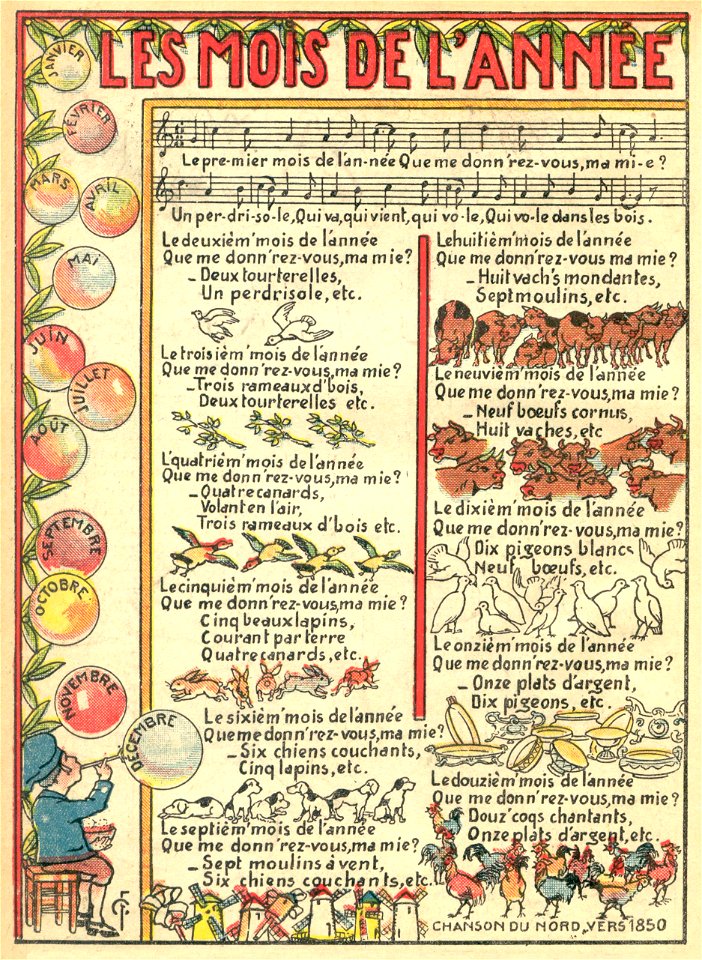 LES MOIS DE L'ANNÉE
JANVIER
FÉVRIER
MARS
AVRIL
MAI
JUIN
JUILLET
AOÛT
SEPTEMBRE
OCTOBRE
NOVEMBRE
DÉCEMBRE
Le pre-mier mois de l'an-née Que me donn'rez-vous, ma mi-e ?
Un per-dri-so-le, Qui va, qui vient, qui vo-le, Qui vo-le dans les bois.
Le deuxièm' mois de l'année
Que me donn'rez-vous, ma mie ?
– Deux tourterelles,
Un perdrisole, etc.
Le troisièm' mois de l'année
Que me donn'rez-vous, ma mie ?
– Trois rameaux d'bois,
Deux tourterelles etc.
L'quatrièm' mois de l'année
Que me donn'rez-vous, ma mie ?
– Quatre canards,
Volant en l'air,
Trois rameaux d'bois etc.
Le cinquièm' mois de l'année
Que me donn'rez-vous, ma mie ?
Cinq beaux lapins,
Courant par terre
Quatre canards, etc.
Le sixièm' mois de l'année
Que me donn'rez-vous, ma mie ?
– Six chiens couchants,
Cinq lapins, etc.
Le septièm' mois de l'année
Que me donn'rez-vous, ma mie ?
– Sept moulins à vent,
Six chiens couchants, etc.
Le huitièm' mois de l'année
Que me donn'rez-vous ma mie ?
– Huit vach's mondantes,
Sept moulins, etc.
Le neuvièm' mois de l'année
Que me donn'rez-vous, ma mie ?
– Neuf bœufs cornus,
Huit vaches, etc
Le dixièm' mois de l'année
Que me donn'rez-vous, ma mie ?
Dix pigeons blancs
Neuf bœufs, etc.
Le onzièm' mois de l'année
Que me donn'rez-vous, ma mie ?
– Onze plats d'argent,
Dix pigeons, etc.
Le douzièm' mois de l'année
Que me donn'rez-vous, ma mie ?
Douz' coqs chantants,
Onze plats d'argent, etc.
CHANSON DU NORD, VERS 1850